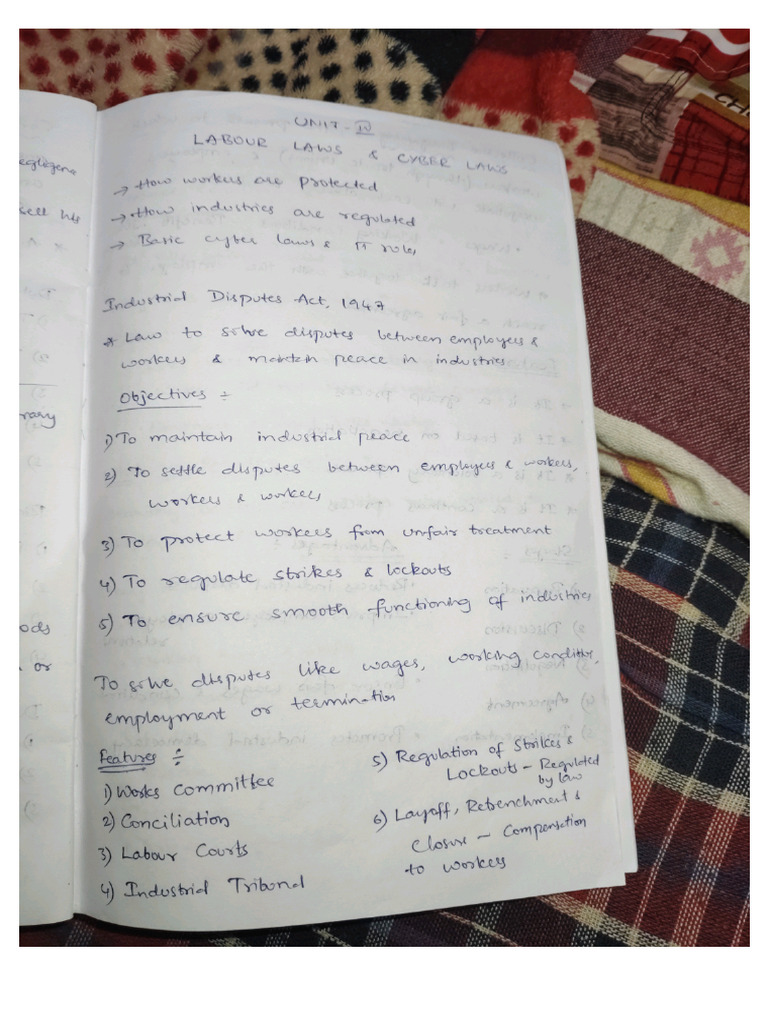 UNIT-IV
LABOUR LAWS & CYBER LAWS
→ How workers are protected
→ How industries are regulated
→ Basic cyber laws & IT rules
Industrial Disputes Act, 1947
* Law to solve disputes between employers &
workers & maintain peace in industries
Objectives ÷
1) To maintain industrial peace
2) To settle disputes between employers & workers,
workers & workers
3) To protect workers from unfair treatment
4) To regulate strikes & lockouts
5) To ensure smooth functioning of industries
To solve disputes like wages, working conditions,
employment or termination
Features ÷
1) Works Committee
2) Conciliation
3) Labour Courts
4) Industrial Tribunal
5) Regulation of Strikes &
Lockouts - Regulated
by law
6) Layoff, Retrenchment &
Closure - Compensation
to workers
sell his
or